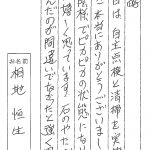 日は、自主点検と清掃を実施
に本当にありがとうございまし
陰様でピカピカの状態になり
嬉しく思っています。石のやた
んだのが間違いでなかったと強く
お名前
相地 恒生